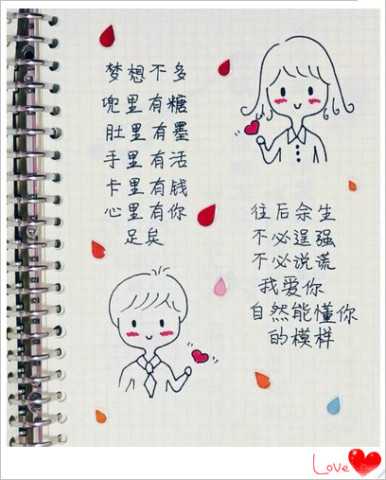 梦想不多
兜里有糖
肚里有墨
手里有活
卡里有钱
心里有你
足矣
往后余生
不必逞强
不必说谎
我爱你
自然能懂你
的模样
Love